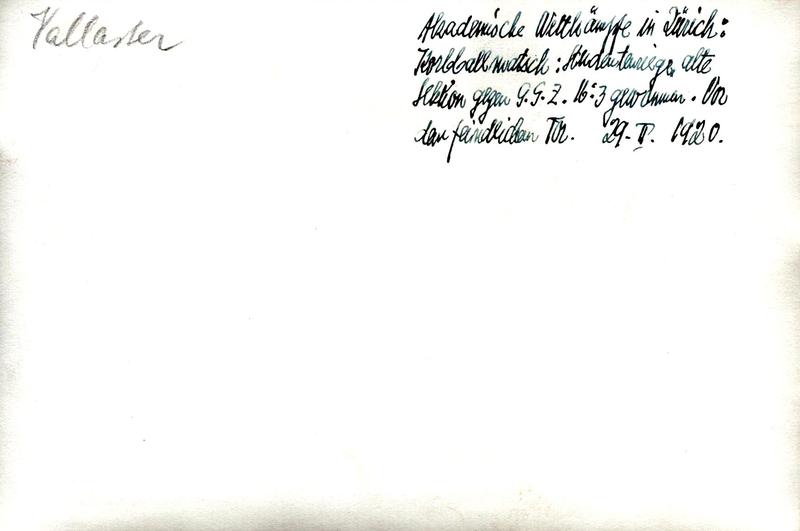 Vallaster
Akademische Wettkämpfe in Zürich:
Korbballmatsch: Studentenriege, alte
Sektion gegen G.G.Z. 16:3 gewonnen. Vor
dem feindlichen Tor. 29. II. 1920.